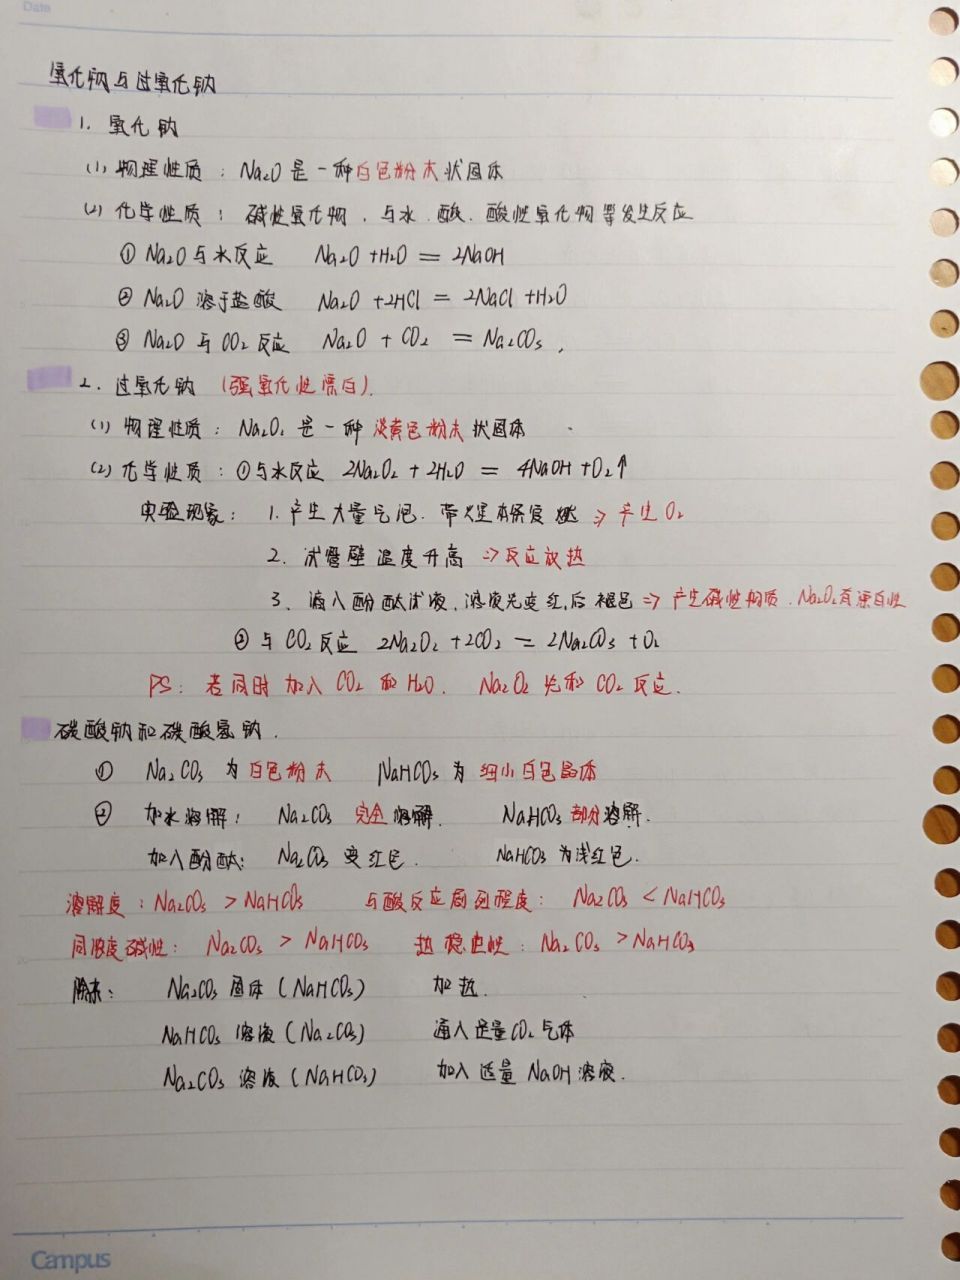 Date
氧化钠与过氧化钠
1. 氧化钠
(1) 物理性质：Na₂O是一种白色粉末状固体
(2) 化学性质：碱性氧化物，与水、酸、酸性氧化物等发生反应
① Na₂O与水反应 Na₂O+H₂O=2NaOH
② Na₂O溶于盐酸 Na₂O+2HCl=2NaCl+H₂O
③ Na₂O与CO₂反应 Na₂O+CO₂=Na₂CO₃.
2. 过氧化钠 (强氧化性漂白).
(1) 物理性质：Na₂O₂是一种淡黄色粉末状固体
(2) 化学性质：①与水反应 2Na₂O₂+2H₂O=4NaOH+O₂↑
实验现象：1. 产生大量气泡. 带火星木条复燃 => 产生O₂
2. 试管壁温度升高 => 反应放热
3. 滴入酚酞试液，溶液先变红，后褪色 => 产生碱性物质、Na₂O₂有漂白性
② 与CO₂反应 2Na₂O₂+2CO₂=2Na₂CO₃+O₂
PS：若同时加入CO₂和H₂O. Na₂O₂先和CO₂反应.
碳酸钠和碳酸氢钠.
① Na₂CO₃为白色粉末 NaHCO₃为细小白色晶体
② 加水溶解： Na₂CO₃完全溶解. NaHCO₃部分溶解.
加入酚酞： Na₂CO₃变红色. NaHCO₃为浅红色.
溶解度：Na₂CO₃>NaHCO₃ 与酸反应剧烈程度：Na₂CO₃<NaHCO₃
同浓度碱性：Na₂CO₃>NaHCO₃ 热稳定性：Na₂CO₃>NaHCO₃
除杂： Na₂CO₃固体(NaHCO₃) 加热.
NaHCO₃溶液(Na₂CO₃) 通入足量CO₂气体
Na₂CO₃溶液(NaHCO₃) 加入适量NaOH溶液.
Campus